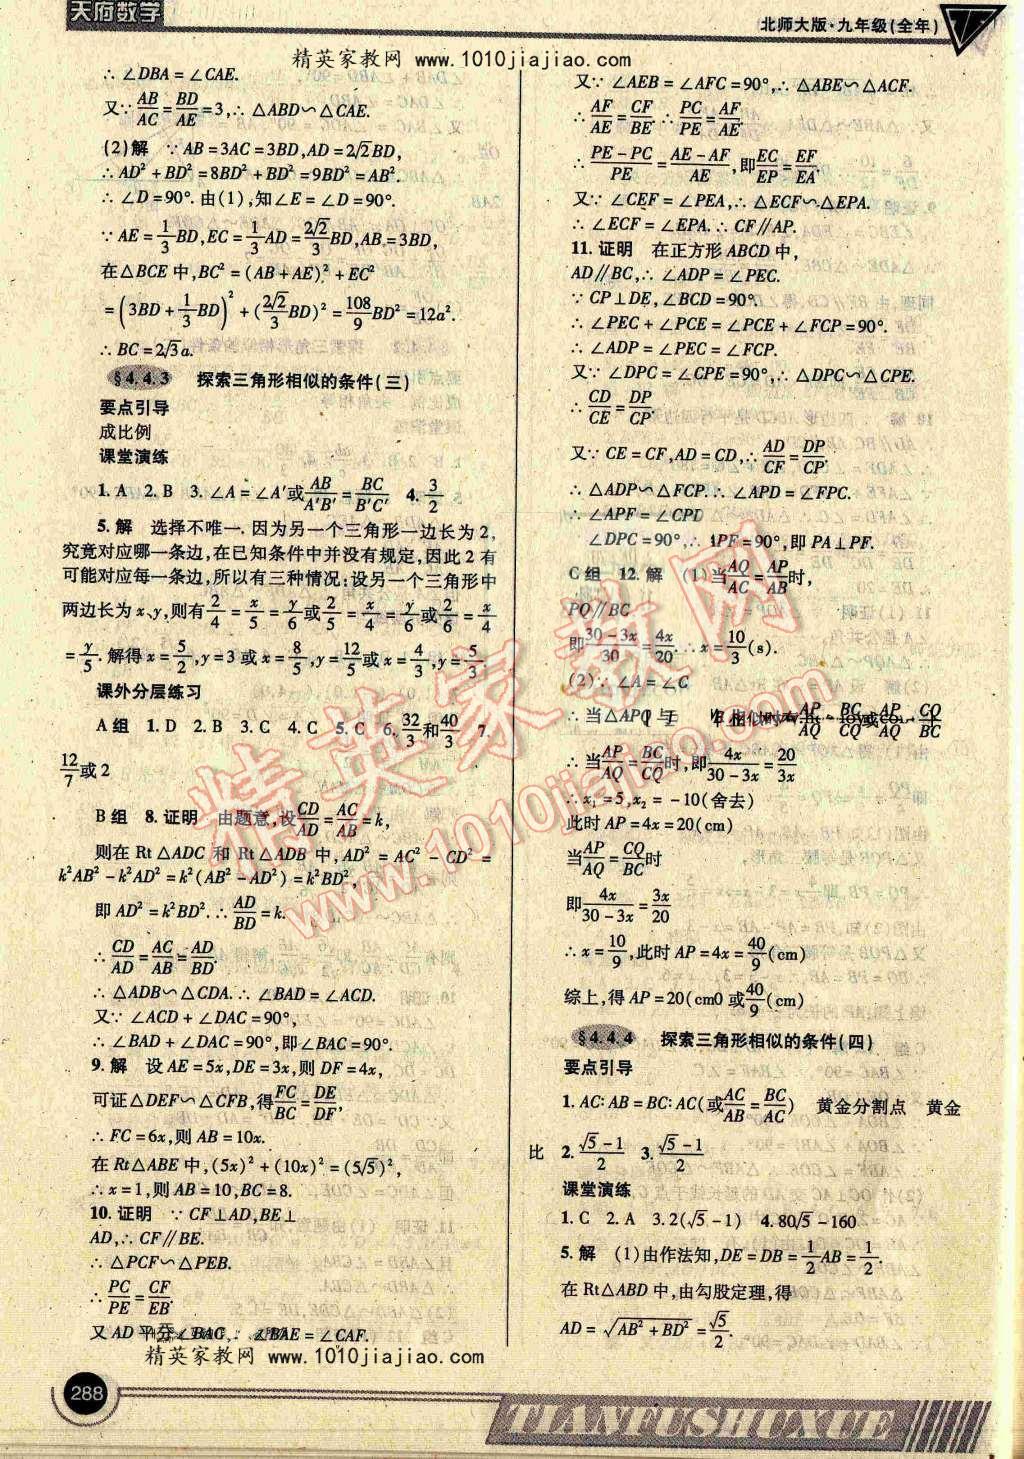 天府数学
北师大版·九年级(全年)
精英家教网 www.1010jiajiao.com
∴ ∠DBA = ∠CAE.
又∵ AB/AC = BD/AE = 3, ∴ △ABD∽△CAE.
(2)解 ∵ AB = 3AC = 3BD, AD = 2√2BD,
∴ AD² + BD² = 8BD² + BD² = 9BD² = AB².
∴ ∠D = 90°. 由(1), 知∠E = ∠D = 90°.
∵ AE = 1/3 BD, EC = 1/3 AD = 2√2/3 BD, AB = 3BD,
在△BCE 中, BC² = (AB + AE)² + EC²
= (3BD + 1/3 BD)² + (2√2/3 BD)² = 108/9 BD² = 12a².
∴ BC = 2√3a.
§4.4.3 探索三角形相似的条件(三)
要点引导
成比例
课堂演练
1. A 2. B 3. ∠A = ∠A′或 AB/A′B′ = BC/B′C′ 4. 3/2
5. 解 选择不唯一. 因为另一个三角形一边长为 2,
究竟对应哪一条边, 在已知条件中并没有规定, 因此 2 有
可能对应每一条边, 所以有三种情况: 设另一个三角形中
两边长为 x、y, 则有 2/4 = x/5 = y/6 或 2/5 = x/4 = y/6 或 2/6 = x/4
= y/5. 解得 x = 5/2, y = 3 或 x = 8/5, y = 12/5 或 x = 4/3, y = 5/3.
课外分层练习
A 组 1. D 2. B 3. C 4. C 5. C 6. 32/3 和 40/3 7.
12/7 或 2
B 组 8. 证明 由题意, 设 CD/AD = AC/AB = k,
则在 Rt△ADC 和 Rt△ADB 中, AD² = AC² - CD² =
k²AB² - k²AD² = k²(AB² - AD²) = k²BD²,
即 AD² = k²BD². ∴ AD/BD = k.
∴ CD/AD = AC/AB = AD/BD.
∴ △ADB∽△CDA. ∴ ∠BAD = ∠ACD.
又∵ ∠ACD + ∠DAC = 90°,
∴ ∠BAD + ∠DAC = 90°, 即∠BAC = 90°.
9. 解 设 AE = 5x, DE = 3x, 则 DF = 4x,
可证△DEF∽△CFB, 得 FC/BC = DE/DF,
∴ FC = 6x, 则 AB = 10x.
在 Rt△ABE 中, (5x)² + (10x)² = (5√5)²,
∴ x = 1, 则 AB = 10, BC = 8.
10. 证明 ∵ CF⊥AD, BE⊥
AD, ∴ CF∥BE.
∴ △PCF∽△PEB.
∴ PC/PE = CF/EB.
又 AD 平分∠BAC, ∴ ∠BAE = ∠CAF.
精英家教网 www.1010jiajiao.com
288
又∵ ∠AEB = ∠AFC = 90°, ∴ △ABE∽△ACF.
∴ AF/AE = CF/BE. ∴ PC/PE = AF/AE.
∴ PE - PC/PE = AE - AF/AE, 即 EC/EP = EF/EA.
又∵ ∠CEF = ∠PEA, ∴ △ECF∽△EPA.
∴ ∠ECF = ∠EPA. ∴ CF∥AP.
11. 证明 在正方形 ABCD 中,
AD∥BC, ∴ ∠ADP = ∠PEC.
∵ CP⊥DE, ∠BCD = 90°.
∴ ∠PEC + ∠PCE = ∠PCE + ∠FCP = 90°.
∴ ∠ADP = ∠PEC = ∠FCP.
又∵ ∠DPC = ∠CPE = 90°, ∴ △DPC∽△CPE.
∴ CD/CE = DP/CP.
又∵ CE = CF, AD = CD, ∴ AD/CF = DP/CP.
∴ △ADP∽△FCP. ∴ ∠APD = ∠FPC.
∴ ∠APF = ∠CPD
∠DPC = 90°, ∴ ∠APF = 90°, 即 PA⊥PF.
C 组 12. 解 (1)当 AQ/AC = AP/AB 时,
PQ∥BC
即 30 - 3x/30 = 4x/20. ∴ x = 10/3 (s).
(2)∵ ∠A = ∠C
∴ 当△APQ 与 相似时有 AP/AQ = BC/CQ 或 AP/AQ = CQ/BC
∴ 当 AP/AQ = BC/CQ 时, 即 4x/30 - 3x = 20/3x
∴ x₁ = 5, x₂ = -10(舍去)
此时 AP = 4x = 20(cm)
当 AP/AQ = CQ/BC 时
即 4x/30 - 3x = 3x/20
∴ x = 10/9, 此时 AP = 4x = 40/9 (cm)
综上, 得 AP = 20(cm0 或 40/9 (cm)
§4.4.4 探索三角形相似的条件(四)
要点引导
1. AC: AB = BC: AC(或 AC/AB = BC/AC) 黄金分割点 黄金
比 2. √5 - 1/2 3. √5 - 1/2
课堂演练
1. C 2. A 3. 2(√5 - 1) 4. 80√5 - 160
5. 解 (1)由作法知, DE = DB = 1/2 AB = 1/2.
在 Rt△ABD 中, 由勾股定理, 得
AD = √(AB² + BD²) = √5/2.
TIANFUSHUXUE
精英家教网
www.1010jiajiao.com